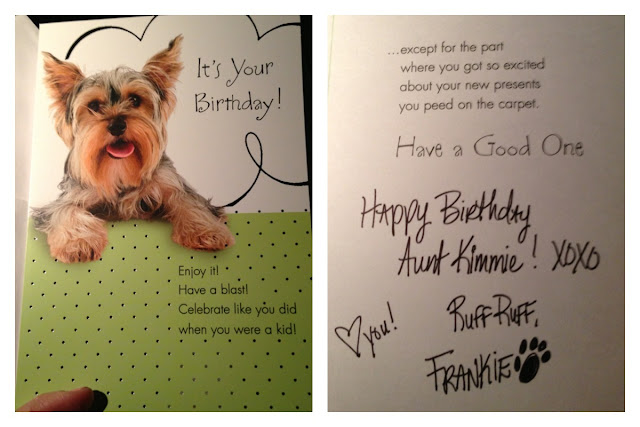 It's Your
Birthday!
Enjoy it!
Have a blast!
Celebrate like you did
when you were a kid!
...except for the part
where you got so excited
about your new presents
you peed on the carpet.
Have a Good One
Happy Birthday
Aunt Kimmie! XOXO
♡ you!
Ruff Ruff,
Frankie